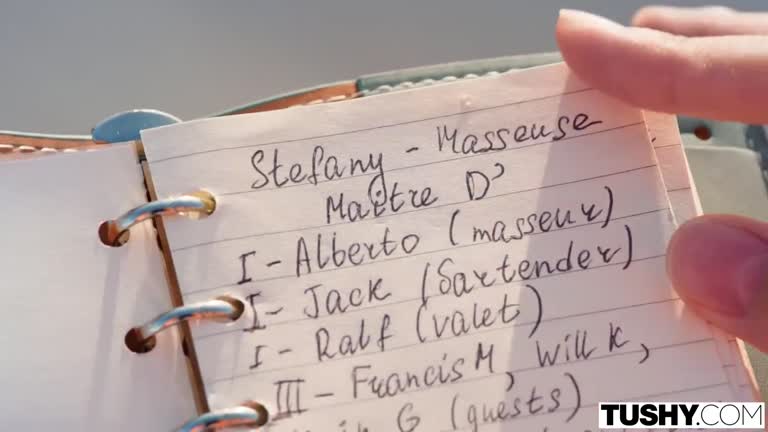 Stefany - Masseuse
Maître D'
I - Alberto (masseur)
I - Jack (bartender)
I - Ralf (valet)
III - Francis M, Will K,
G (guests)
TUSHY.COM